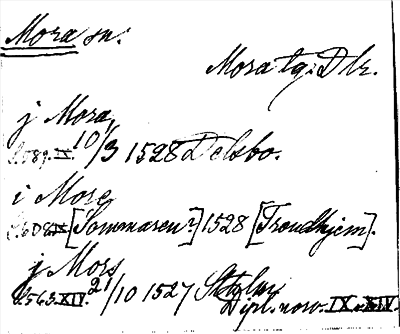 Mora sn:
Mora tg: Dlr.
j Mora,
s. 589. IX. 10/3 1528 Delsbo.
i More
s. 608. IX [Sommaren?] 1528 [Trondhjem].
j Mors
s. 563. XIV. 21/10 1527
Dipl. norv. IX. XIV.